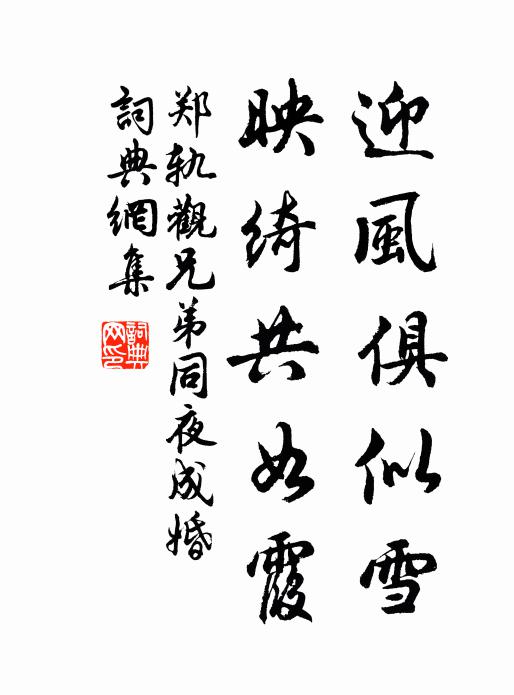 迎風俱似雪
映綺共如霞
郑軌觀兄弟同夜成婚
詞典網集
詞典網印